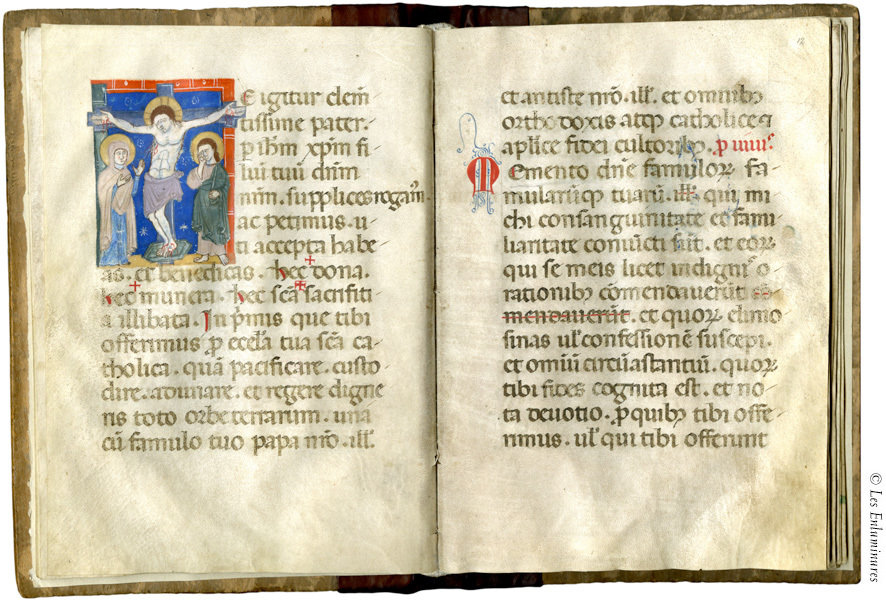 E igitur clem̄
tissime pater.
p ih̄m xp̄m fi
lium tuum dn̄m
nr̄m. supplices rogam̄
ac petimus. u
ti accepta habe
as. et benedicas. hec ✝ dona.
hec ✝ munera. hec ✝ sc̄a sacrifiti
a illibata. In p̄mis que tibi
offerimus p̄ eccl̄a tua sc̄a ca
tholica. quā pacificare. custo
dire. adunare. et regere digne
ris toto orbe terrarum. una
cū famulo tuo papa nr̄o. ill̄.
12
et antiste nr̄o. ill̄. et omnibꝫ
orthodoxis atqꝫ catholice ⁊
aplīce fidei cultoribꝫ. p̄ uiuis.
Memento dn̄e famuloꝝ fa
mularūqꝫ tuarū. ill̄. qui mi
chi consanguinitate et fami
liaritate coniūcti sūt. et eoꝝ
qui se meis licet indignis o
rationibꝫ cōmendauerūt co
mendauerūt. et quoꝝ elimo
sinas ul̄ confessionē suscepi.
et omiū circūastantiū. quoꝝ
tibi fides cognita est. et no
ta deuotio. p̄ quibꝫ tibi offe
rimus. ul̄ qui tibi offerunt
© Les Enluminures